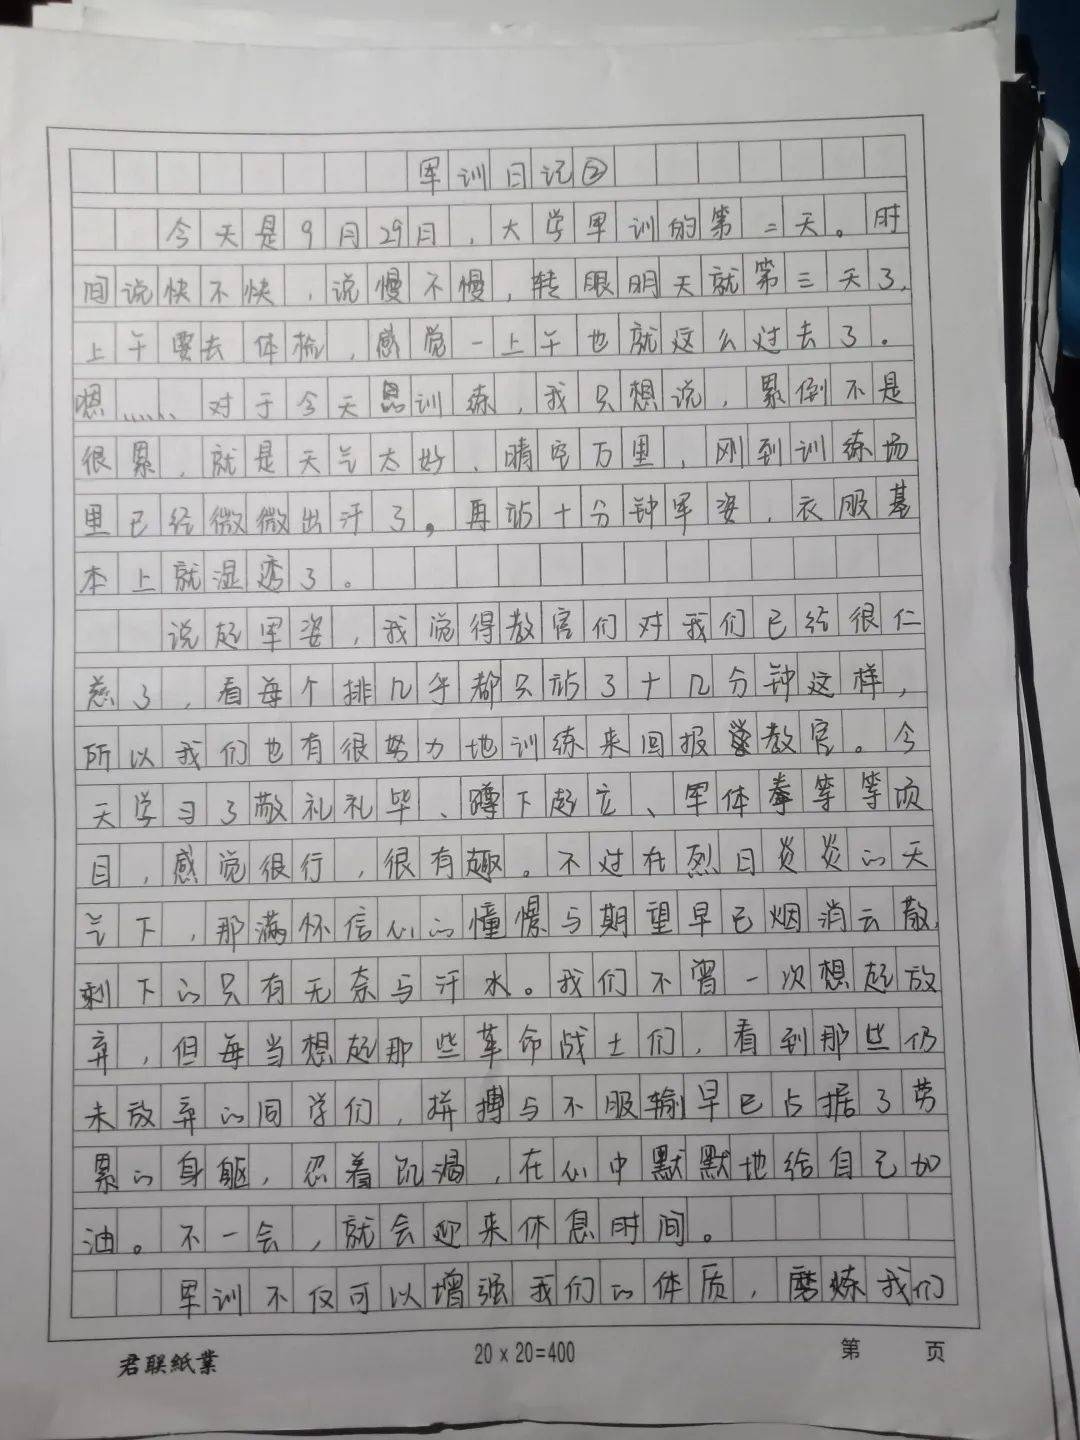 军训日记②
今天是9月29日，大学军训的第二天。时
间说快不快，说慢不慢，转眼明天就第三天了，
上午要去体检，感觉一上午也就这么过去了。
嗯……对于今天的训练，我只想说，累倒不是
很累，就是天气太好，晴空万里，刚到训练场
里已经微微出汗了。再站十分钟军姿，衣服基
本上就湿透了。
说起军姿，我觉得教官们对我们已经很仁
慈了，看每个排几乎都只站了十几分钟这样，
所以我们也有很努力地训练来回报教官。今
天学习了敬礼礼毕、蹲下起立、军体拳等等项
目，感觉很行，很有趣。不过在烈日炎炎的天
气下，那满怀信心的憧憬与期望早已烟消云散，
剩下的只有无奈与汗水。我们不曾一次想起放
弃，但每当想起那些革命战士们，看到那些仍
未放弃的同学们，拼搏与不服输早已占据了劳
累的身躯，忍着饥渴，在心中默默地给自己加
油。不一会，就会迎来休息时间。
军训不仅可以增强我们的体质，磨炼我们
君联紙業
20×20=400
第 页